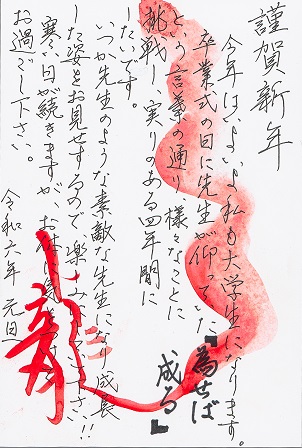 謹賀新年
今年はいよいよ私も大学生になります。
卒業式の日に先生が仰っていた『為せば成る』
という言葉の通り、様々なことに
挑戦し実りのある四年間に
したいです。
いつか先生のような素敵な先生になり成長
した姿をお見せするので楽しみに
寒い日が続きますが、お体に気を
お過ごし下さい。
令和六年 元旦
龍